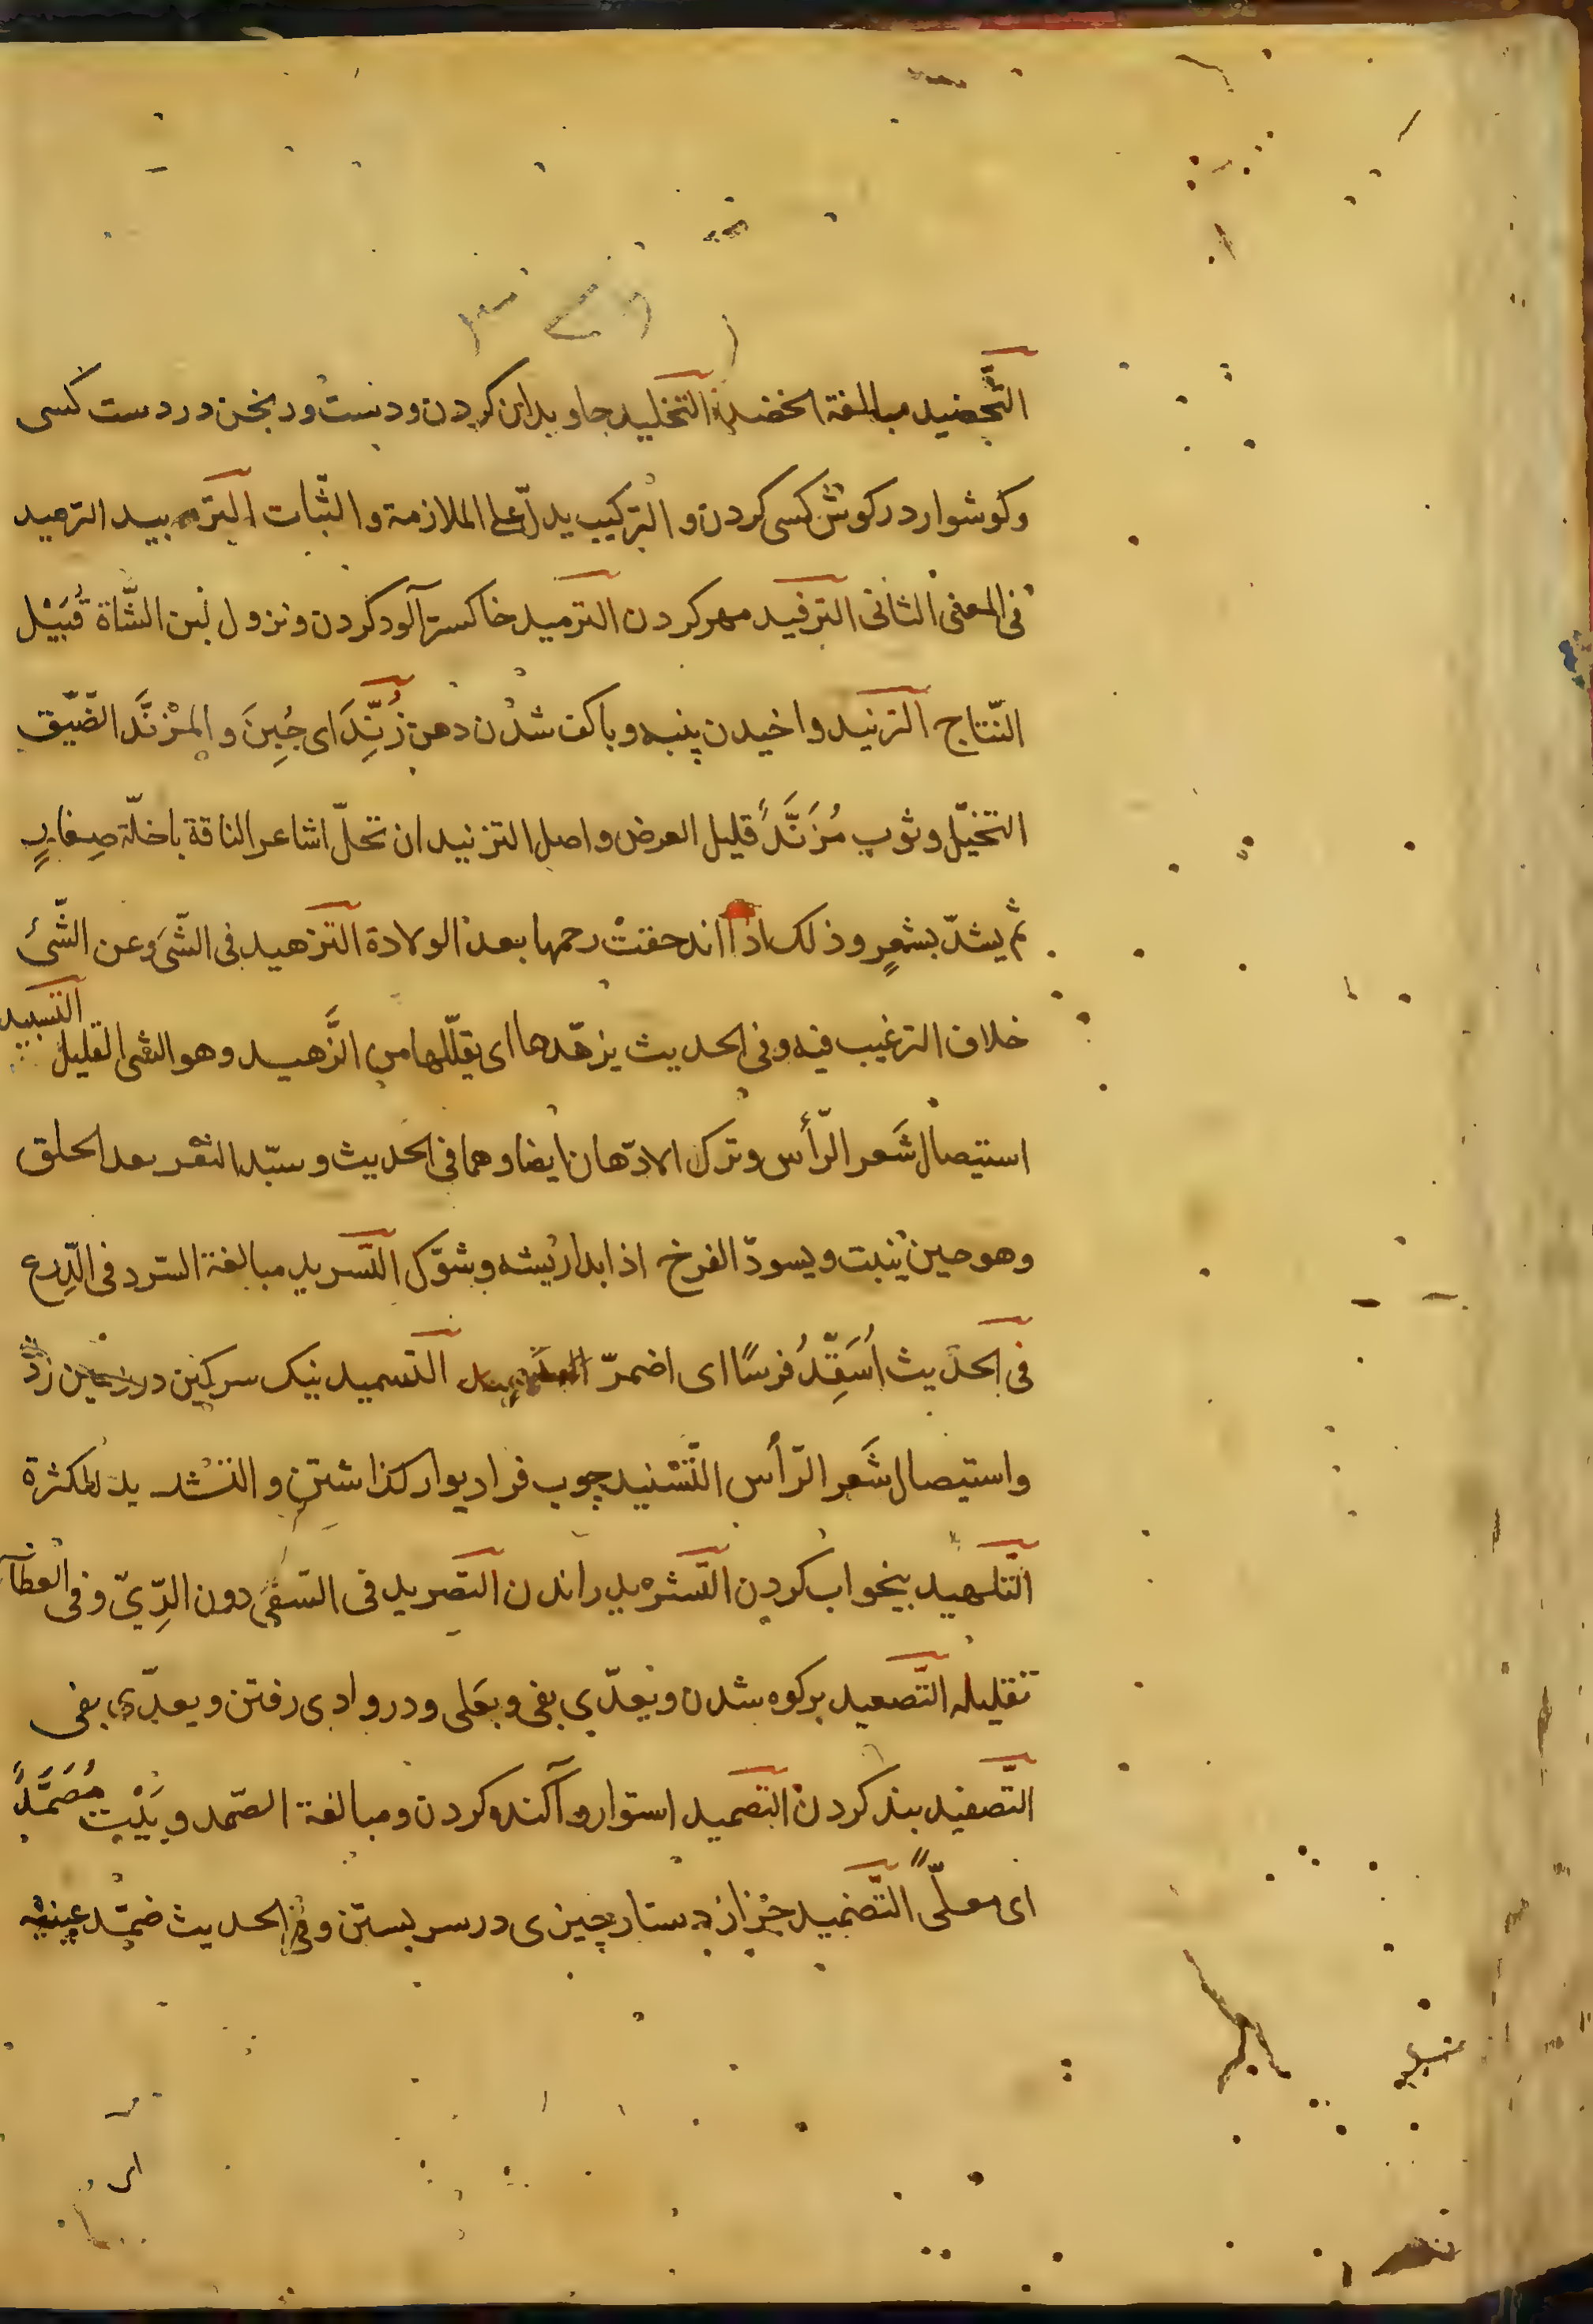 التخضيد مبالغة الخضد التخليد جاويدان كردن و دست ورنجن در دست كسى
وكوشوار در كوش كسى كردن و التركيب يدلّ على الملازمة و الثّبات التربيد الترميد
فى المعنى الثانى الترفيد مهر كردن الترميد خاكستر آلود كردن و نزول لبن الشّاة قُبَيْل
النّتاج التزنيد واخيدن پنبه و باكف شدن دهن زُنِّدَ اى جُبِنَ و المُزنَّد الضّيّق
التخيّل وثوب مُزَنَّدٌ قليل العرض واصل التزنيد ان تخلّ اشاعر الناقة باخلّة صِغارٍ
ثم يشدّ بشعرٍ وذلك اذا اندحقتْ رحمها بعد الولادة التزهيد فى الشّئ وعن الشّئ
خلاف الترغيب فيه وفى الحديث يزهّدها اى يقلّلها من الزَّهيد وهو الشى القليل التسبيد
استيصال شَعر الرّأس وترك الادّهان ايضا وهما فى الحديث وسبّد الشعر بعد الحلق
وهو حين ينبت ويسودّ الفرخ اذا بدا ريشه وشوّك التّسريد مبالغة السّرد فى الدّرع
فى الحديث اُسَقِّدُ فرسًا اى اضمرّ التسميد نيک سركين در زمين زد
واستيصال شَعر الرّأس التّسْنيد چوب فرا ديوار كذاشتن و التشديد للكثرة
التّسهيد بيخواب كردن التّشريد راندن التّصريد فى السّقى دون الرّيّ و فى العطآء
تقليله التّصعيد بركوه شدن ويعدّي بفى وبعلى ودر وادى رفتن و يعدّي بفى
التّصفيد بند كردن التّصميد استوار و آكنده كردن و مبالغة الصّمد و بَيْت مُصَمَّدٌ
اى معلّىً التّضميد جز از دستار چيزى در سر بستن و فى الحديث ضمّد عينه